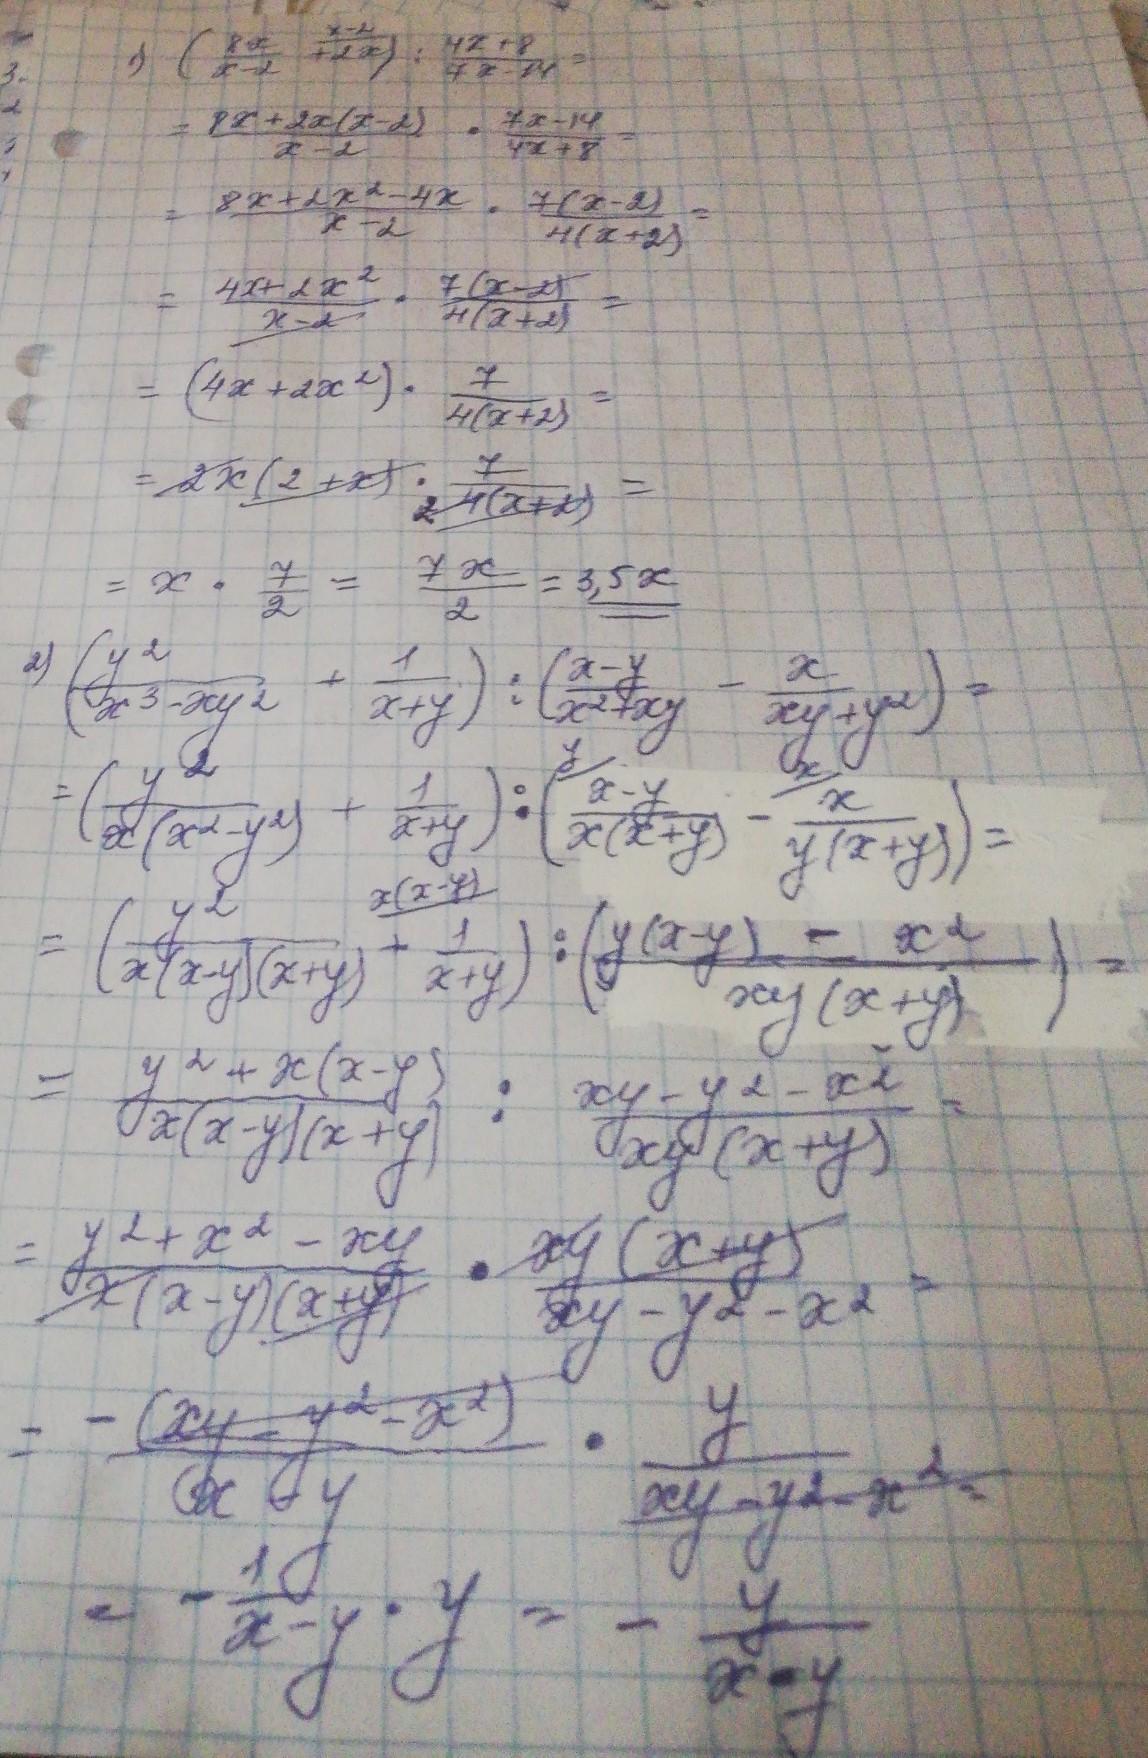 1) (8x/(x-2) + 2x^(x-2)) : (4x+8)/(7x-14) =
= (8x+2x(x-2))/(x-2) · (7x-14)/(4x+8) =
= (8x+2x²-4x)/(x-2) · 7(x-2)/(4(x+2)) =
= (4x+2x²)/(x-2) · 7(x-2)/(4(x+2)) =
= (4x+2x²) · 7/(4(x+2)) =
= 2x(2+x) · 7/(2 4(x+2)) =
= x · 7/2 = 7x/2 = 3,5x
2) (y²/(x³-xy²) + 1/(x+y)) : ((x-y)/(x²+xy) - x/(xy+y²)) =
= (y²/(x(x²-y²)) + 1/(x+y)) : ((x-y)^(y)/(x(x+y)) - x^(x)/(y(x+y))) =
= (y²/(x(x-y)(x+y)) + 1^(x(x-y))/(x+y)) : ((y(x-y) - x²)/(xy(x+y))) =
= (y²+x(x-y))/(x(x-y)(x+y)) : (xy-y²-x²)/(xy(x+y)) =
= (y²+x²-xy)/(x(x-y)(x+y)) · xy(x+y)/(xy-y²-x²) =
= -(xy-y²-x²)/(x-y) · y/(xy-y²-x²) =
= -1/(x-y) · y = - y/(x-y)